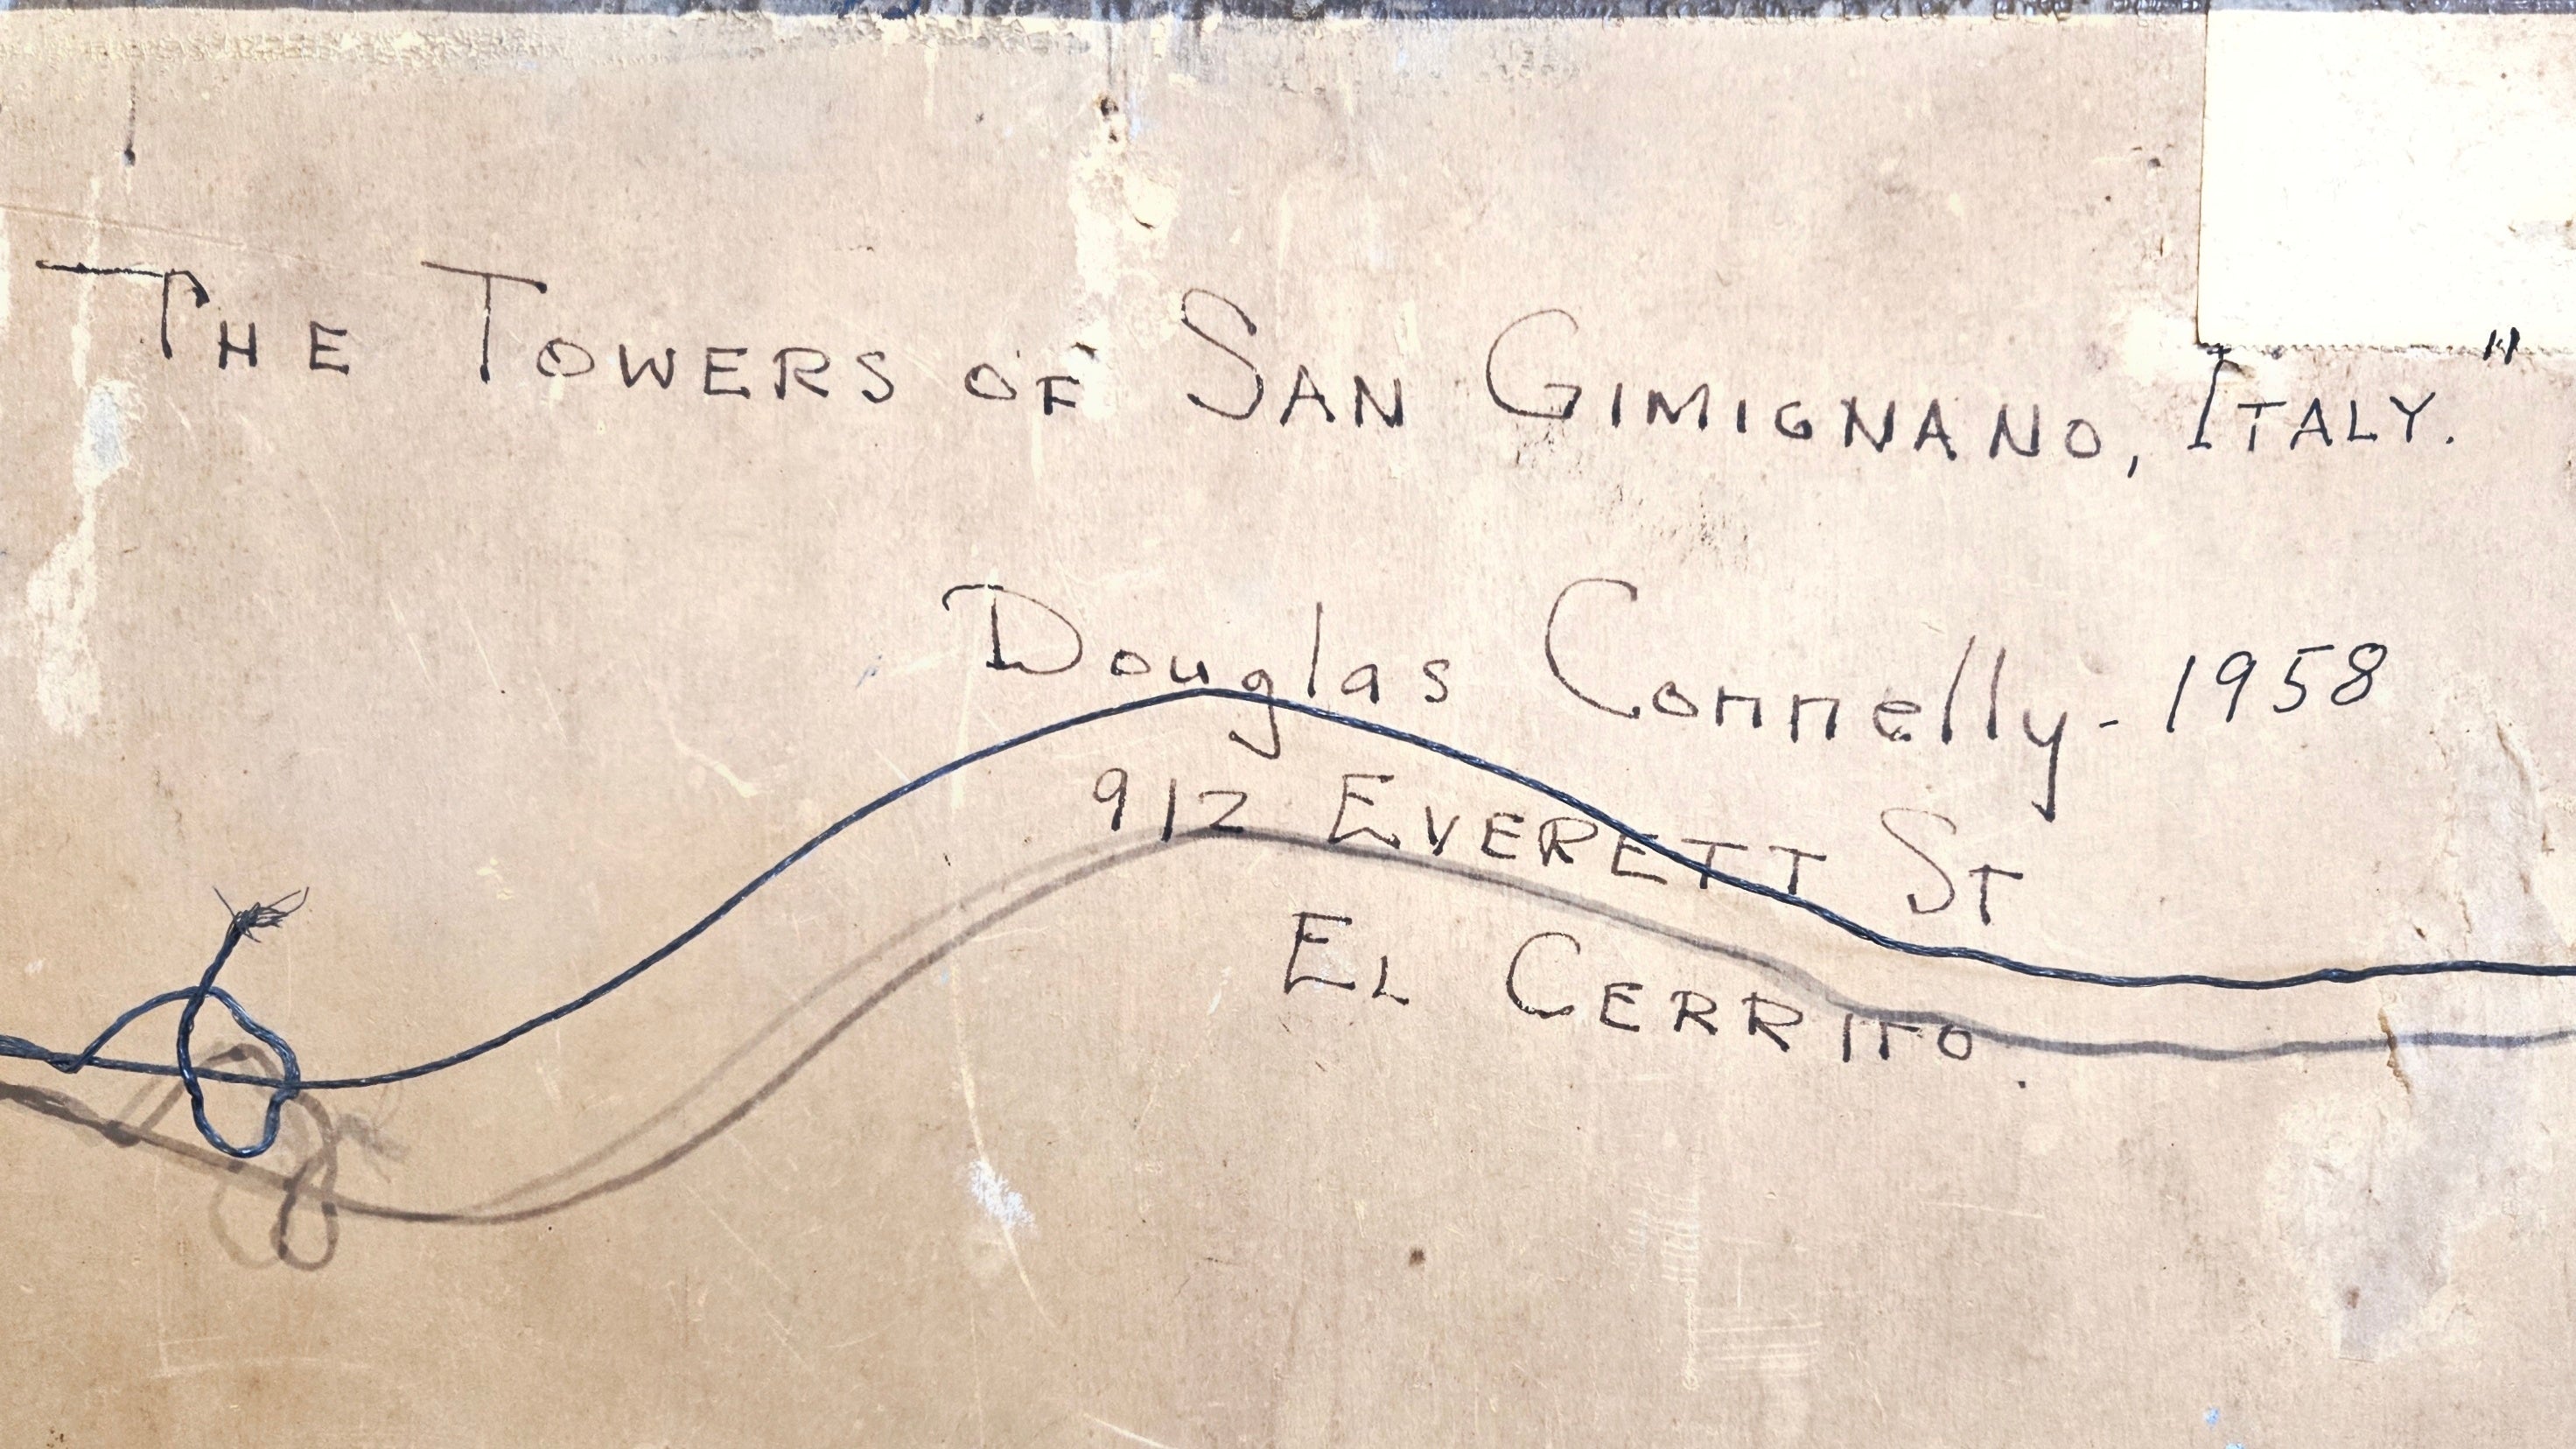 The Towers of San Gimignano, Italy."
Douglas Connelly - 1958
912 Everett St
El Cerrito.